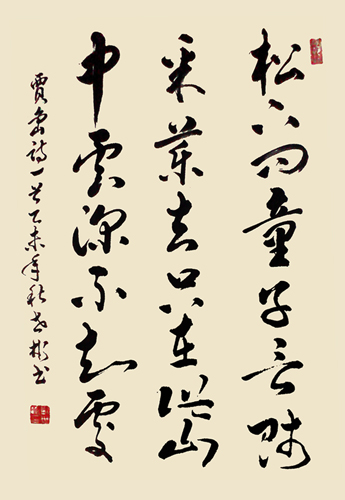 松下問童子言師
采藥去只在此山
中雲深不知處
賈島詩一首乙未年秋彬書